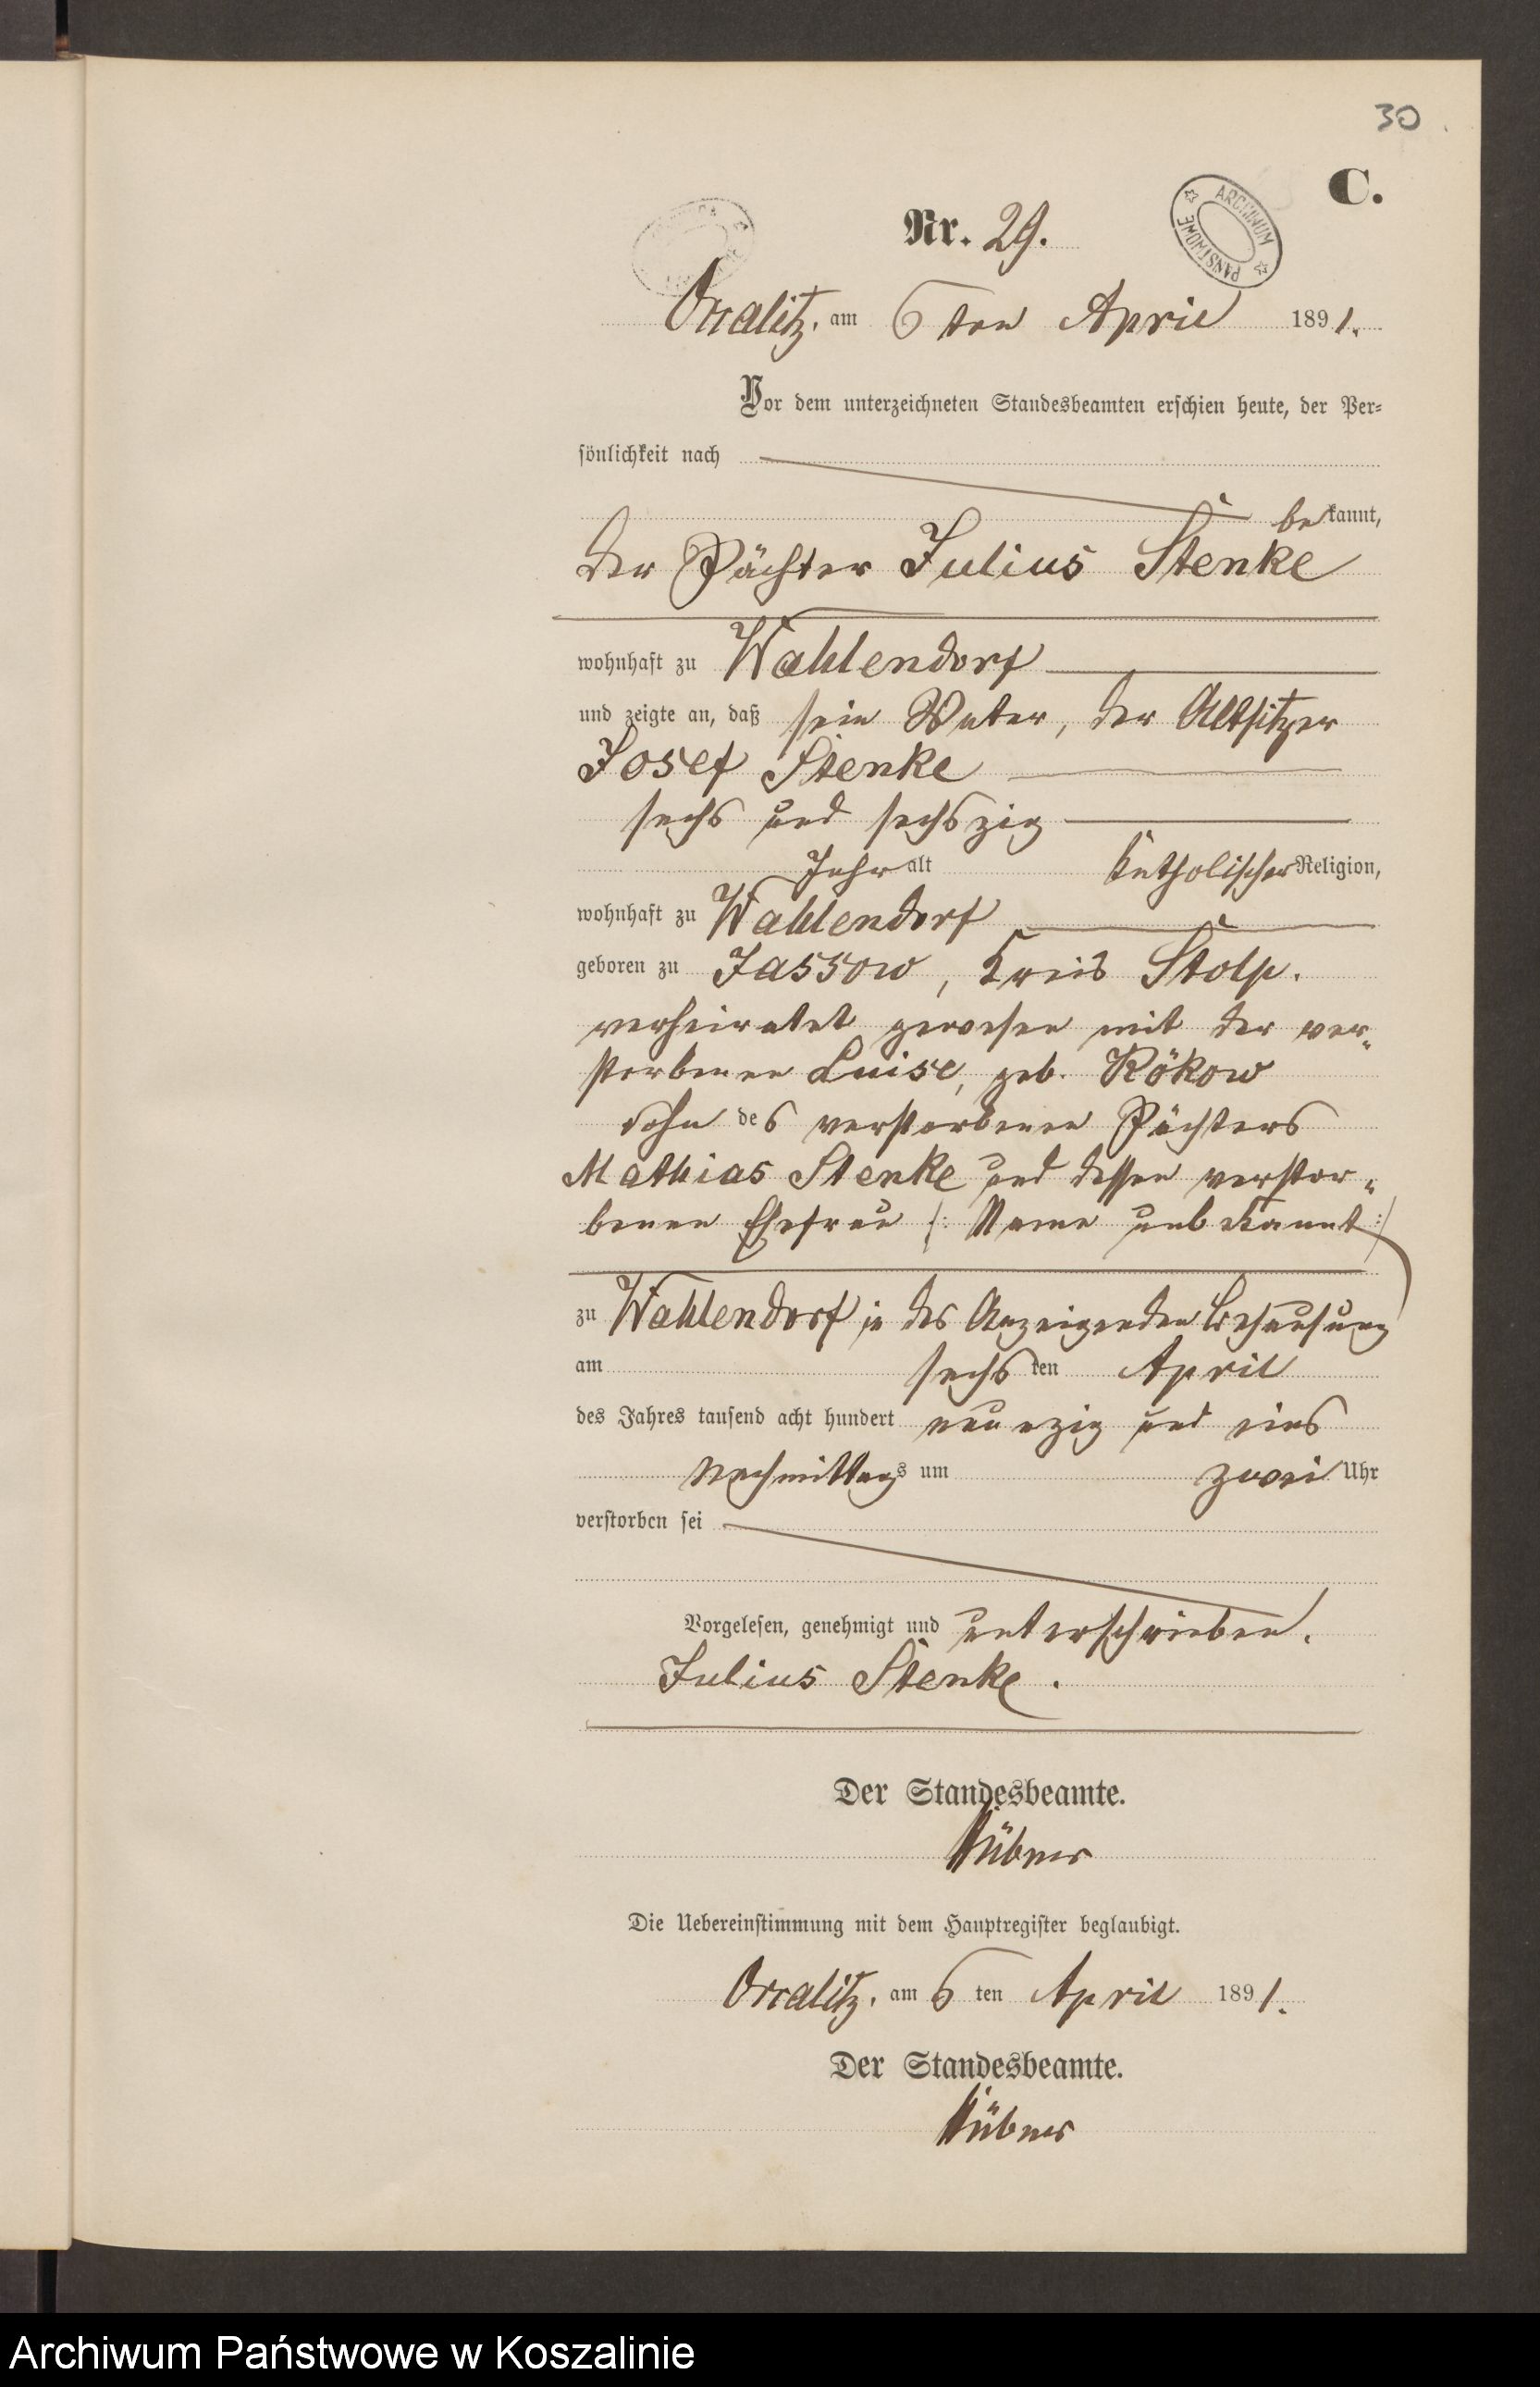 30
C.
ARCHIWUM PAŃSTWOWE
Nr. 29.
Occalitz, am 6ten April 1891.
Vor dem unterzeichneten Standesbeamten erschien heute, der Per-
sönlichkeit nach
bekannt,
der Pächter Julius Stenke
wohnhaft zu Wahlendorf
und zeigte an, daß sein Vater, der Altsitzer
Josef Stenke
sechs und sechszig
Jahr alt katholischer Religion,
wohnhaft zu Wahlendorf
geboren zu Jassow, Kreis Stolp.
verheiratet gewesen mit der ver-
storbenen Luise, geb. Kökow
Sohn des verstorbenen Pächters
Mathias Stenke und dessen verstor-
benen Ehefrau /: Name unbekannt :/
zu Wahlendorf in des Anzeigenden Behausung
am sechsten April
des Jahres tausend acht hundert neunzig und eins
Nachmittags um zwei Uhr
verstorben sei
Vorgelesen, genehmigt und unterschrieben.
Julius Stenke.
Der Standesbeamte.
Hübner
Die Uebereinstimmung mit dem Hauptregister beglaubigt.
Occalitz, am 6ten April 1891.
Der Standesbeamte.
Hübner
Archiwum Państwowe w Koszalinie